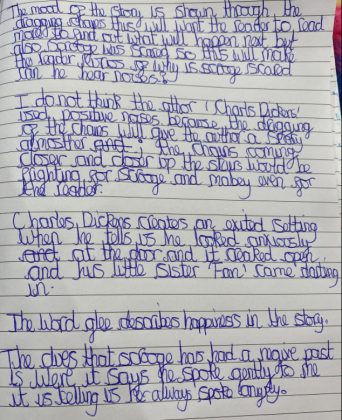 The mood of the story is shown through the
dragging chains this will want the reader to read
more to find out what will happen next but
also scrooge was scared so this will make
the reader of why is scrooge scared
can he hear noises?
I do not think the other 'Charls Dickens'
used positive noises because the dragging
of the chains will give the author a
atmosther and the chains coming
closer and closer up the stairs would be
frighting for scrooge and mabey even for
the reader.
Charles Dickens creats an exited setting
when he tells us he looked anxiously
and at the door and it creaked open
and his little sister 'Fan' came darting
in.
The word glee describes happiness in the story.
The clues that scrooge has had a past
is it says he spoke gently to she
it is telling us he always spoke